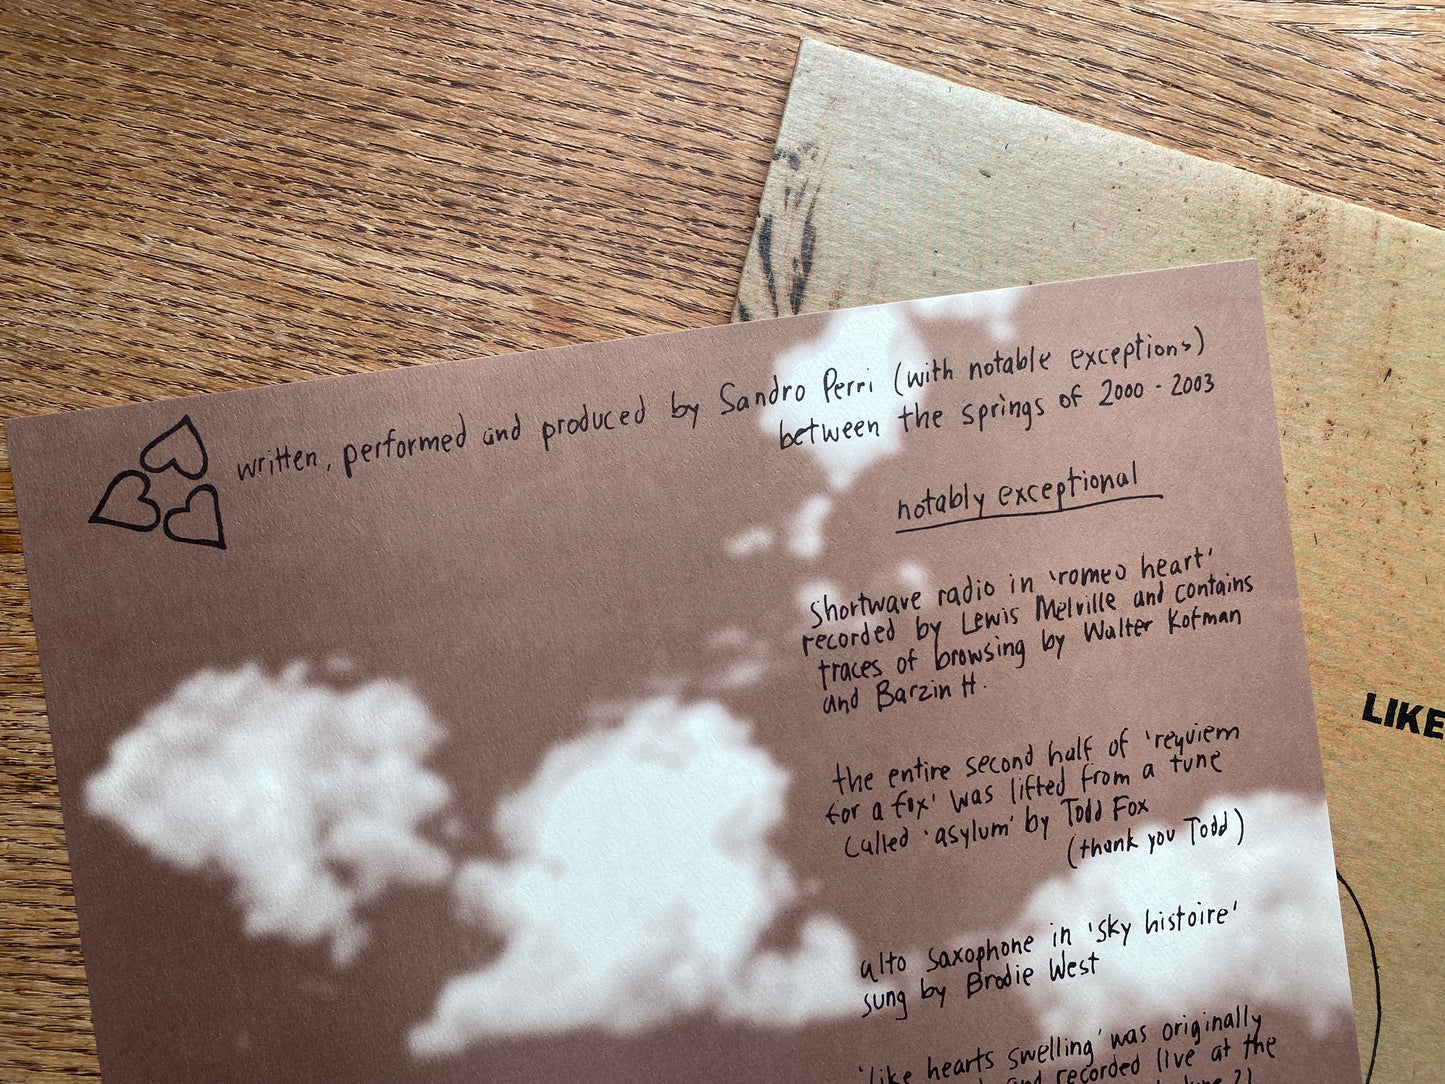 written, performed and produced by Sandro Perri (with notable exceptions)
between the springs of 2000 - 2003
notably exceptional
shortwave radio in 'romeo heart'
recorded by Lewis Melville and contains
traces of browsing by Walter Kofman
and Barzin H.
the entire second half of 'requiem
for a fox' was lifted from a tune
called 'asylum' by Todd Fox
(thank you Todd)
alto saxophone in 'sky histoire'
sung by Brodie West
'like hearts swelling' was originally
and recorded live at the
LIKE